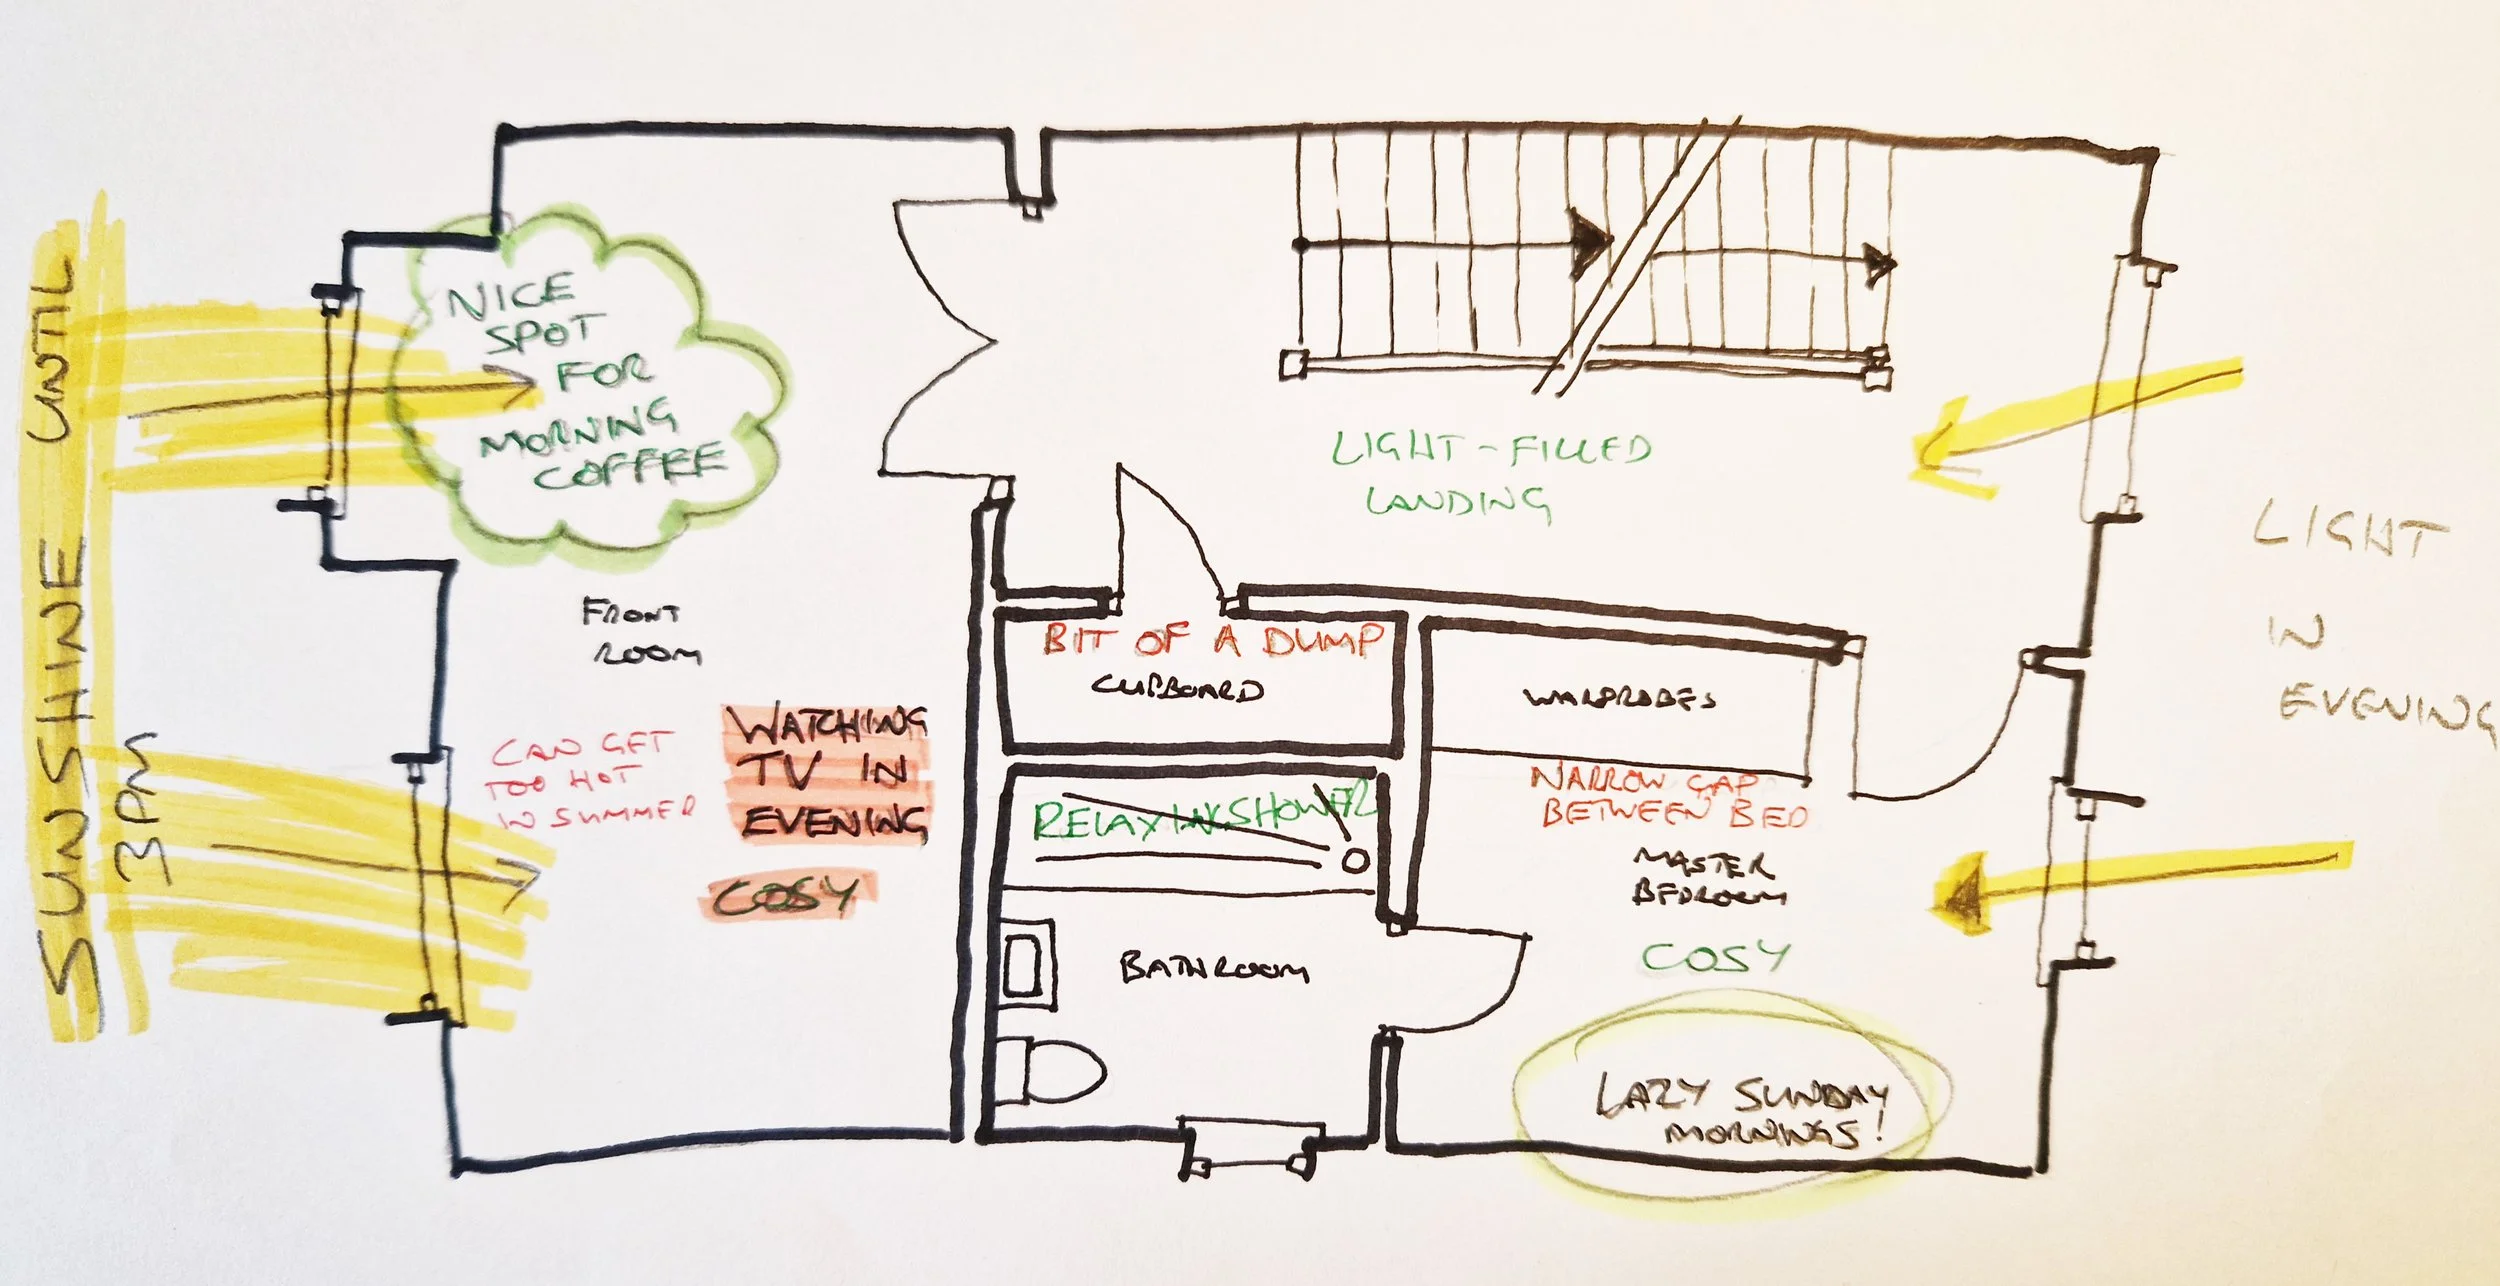 SUNSHINE UNTIL
3PM
NICE
SPOT
FOR
MORNING
COFFEE
FRONT
ROOM
CAN GET
TOO HOT
IN SUMMER
WATCHING
TV IN
EVENING
COSY
LIGHT-FILLED
LANDING
BIT OF A DUMP
CUPBOARD
RELAXING SHOWER
BATHROOM
WARDROBES
NARROW GAP
BETWEEN BED
MASTER
BEDROOM
COSY
LAZY SUNDAY
MORNINGS!
LIGHT
IN
EVENING